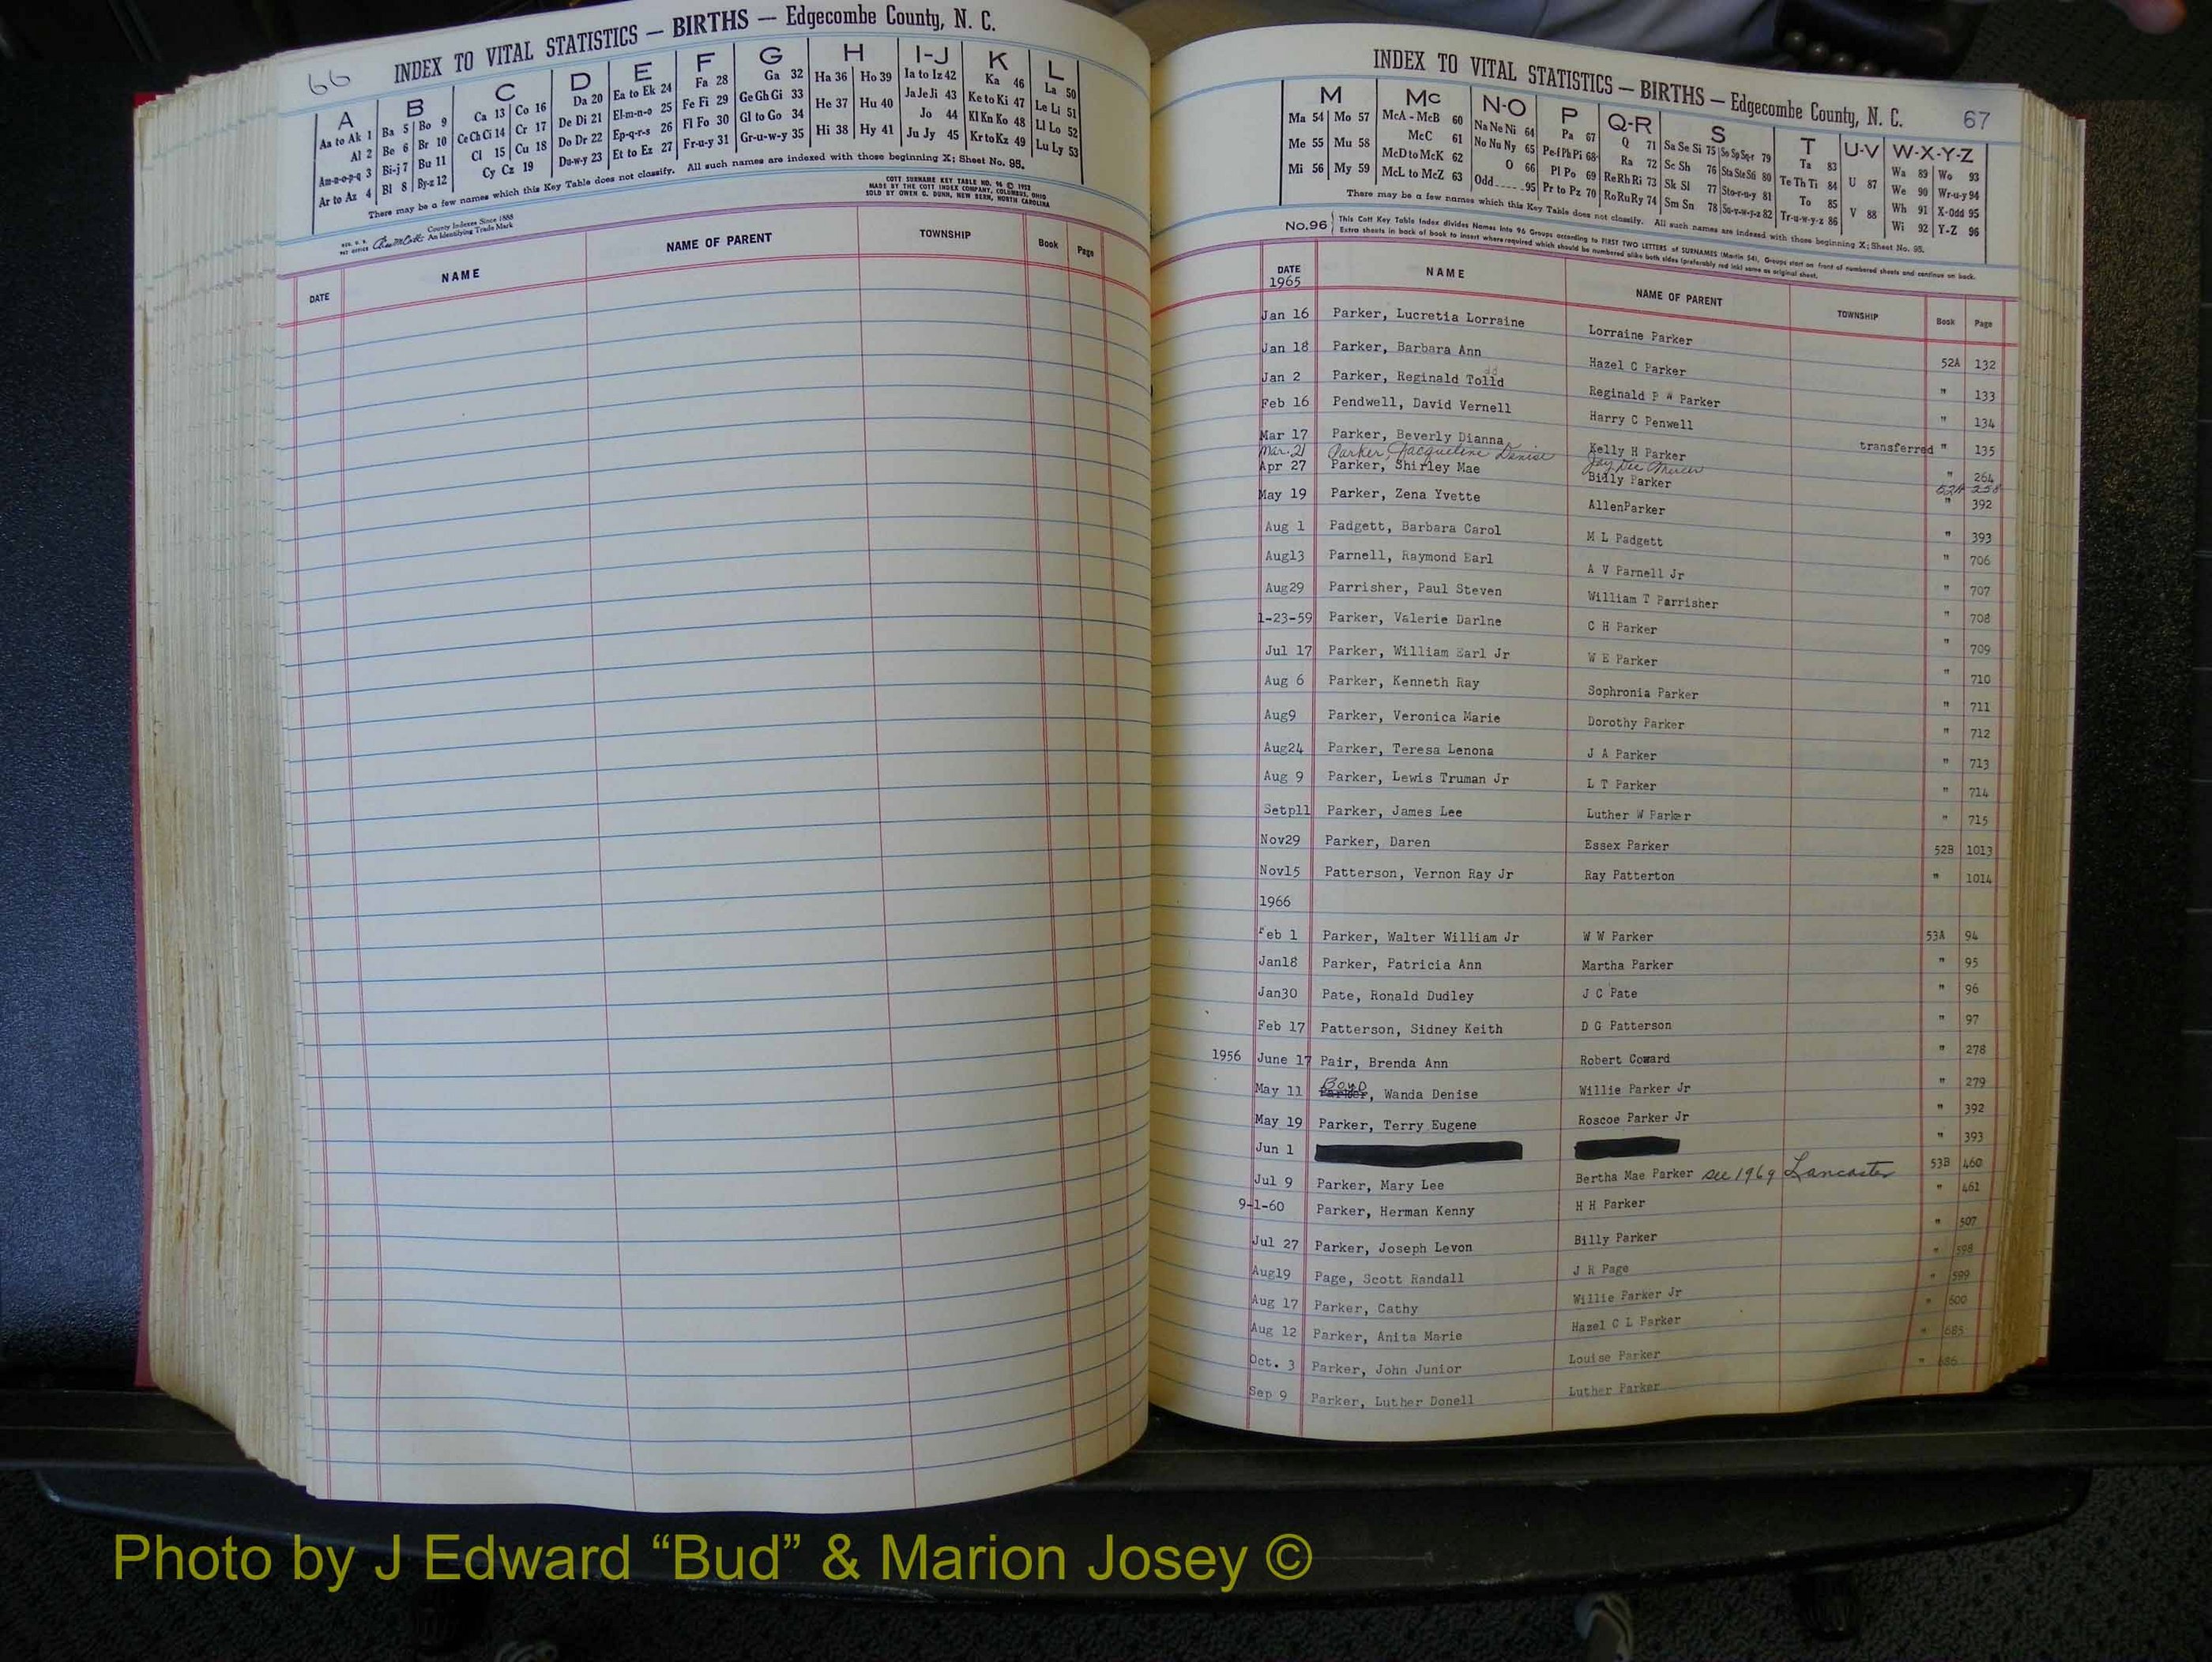 66
INDEX TO VITAL STATISTICS — BIRTHS — Edgecombe County, N. C.
A B C D E F G H I-J K L
Aa to Ak 1 Ba 5 Bo 9 Ca 13 Co 16 Da 20 Ea to Ek 24 Fa 28 Ga 32 Ha 36 Ho 39 Ia to Iz 42 Ka 46 La 50
Al 2 Be 6 Br 10 Ce Ch Ci 14 Cr 17 De Di 21 El-m-n-o 25 Fe Fi 29 Ge Gh Gi 33 He 37 Hu 40 Ja Je Ji 43 Ke to Ki 47 Le Li 51
Am-n-o-p-q 3 Bi-j 7 Bu 11 Cl 15 Cu 18 Do Dr 22 Ep-q-r-s 26 Fl Fo 30 Gl to Go 34 Hi 38 Hy 41 Jo 44 Kl Kn Ko 48 Ll Lo 52
Ar to Az 4 Bl 8 By-z 12 Cy Cz 19 Du-w-y 23 Et to Ez 27 Fr-u-y 31 Gr-u-w-y 35 Ju Jy 45 Kr to Kz 49 Lu Ly 53
There may be a few names which this Key Table does not classify. All such names are indexed with those beginning X; Sheet No. 95.
County Indexes Since 1888
An Identifying Trade Mark
COTT SURNAME KEY TABLE NO. 96 ©
MADE BY THE COTT INDEX COMPANY, COLUMBUS, OHIO
SOLD BY OWEN G. DUNN, NEW BERN, NORTH CAROLINA
DATE NAME NAME OF PARENT TOWNSHIP Book Page
INDEX TO VITAL STATISTICS — BIRTHS — Edgecombe County, N. C. 67
M Mc N-O P Q-R S T U-V W-X-Y-Z
Ma 54 Mo 57 McA - McB 60 Na Ne Ni 64 Pa 67 Q 71 Sa Se Si 75 So Sp Sq-r 79 Ta 83 U 87 Wa 89 Wo 93
Me 55 Mu 58 McC 61 No Nu Ny 65 Pe-f Ph Pi 68 Ra 72 Sc Sh 76 Sta Ste Sti 80 Te Th Ti 84 V 88 We 90 Wr-u-y 94
Mi 56 My 59 McD to McK 62 O 66 Pl Po 69 Re Rh Ri 73 Sk Sl 77 Sto-r-u-y 81 To 85 Wh 91 X-Odd 95
McL to McZ 63 Odd 95 Pr to Pz 70 Ro Ru Ry 74 Sm Sn 78 Su-v-w-y-z 82 Tr-u-w-y-z 86 Wi 92 Y-Z 96
There may be a few names which this Key Table does not classify. All such names are indexed with those beginning X; Sheet No. 95.
No.96 This Cott Key Table Index divides Names into 96 Groups according to FIRST TWO LETTERS of SURNAMES (Martin 54). Groups start on front of numbered sheets and continue on back.
Extra sheets in back of book to insert where required which should be numbered alike both sides (preferably red ink) same as original sheet.
DATE NAME NAME OF PARENT TOWNSHIP Book Page
1965
Jan 16 Parker, Lucretia Lorraine Lorraine Parker 52A 132
Jan 18 Parker, Barbara Ann Hazel C Parker " 133
Jan 2 Parker, Reginald Tolld Reginald P W Parker " 134
Feb 16 Pendwell, David Vernell Harry C Penwell transferred " 135
Mar 17 Parker, Beverly Dianna Kelly H Parker " 264
Mar. 21 Parker, Jacqueline Denise Jay Dee Mercer 52A 258
Apr 27 Parker, Shirley Mae Billy Parker " 392
May 19 Parker, Zena Yvette AllenParker " 393
Aug 1 Padgett, Barbara Carol M L Padgett " 706
Aug13 Parnell, Raymond Earl A V Parnell Jr " 707
Aug29 Parrisher, Paul Steven William T Parrisher " 708
1-23-59 Parker, Valerie Darlne C H Parker " 709
Jul 17 Parker, William Earl Jr W E Parker " 710
Aug 6 Parker, Kenneth Ray Sophronia Parker " 711
Aug9 Parker, Veronica Marie Dorothy Parker " 712
Aug24 Parker, Teresa Lenona J A Parker " 713
Aug 9 Parker, Lewis Truman Jr L T Parker " 714
Setp11 Parker, James Lee Luther W Parker " 715
Nov29 Parker, Daren Essex Parker 52B 1013
Nov15 Patterson, Vernon Ray Jr Ray Patterton " 1014
1966
Feb 1 Parker, Walter William Jr W W Parker 53A 94
Jan18 Parker, Patricia Ann Martha Parker " 95
Jan30 Pate, Ronald Dudley J C Pate " 96
Feb 17 Patterson, Sidney Keith D G Patterson " 97
1956 June 17 Pair, Brenda Ann Robert Coward " 278
May 11 Boyd Parker, Wanda Denise Willie Parker Jr " 279
May 19 Parker, Terry Eugene Roscoe Parker Jr " 392
Jun 1 " 393
Jul 9 Parker, Mary Lee Bertha Mae Parker see 1969 Lancaster 53B 460
9-1-60 Parker, Herman Kenny H H Parker " 461
Jul 27 Parker, Joseph Levon Billy Parker " 507
Aug19 Page, Scott Randall J R Page " 598
Aug 17 Parker, Cathy Willie Parker Jr " 599
Aug 12 Parker, Anita Marie Hazel C L Parker " 600
Oct. 3 Parker, John Junior Louise Parker " 685
Sep 9 Parker, Luther Donell Luther Parker " 686
Photo by J Edward “Bud” & Marion Josey ©